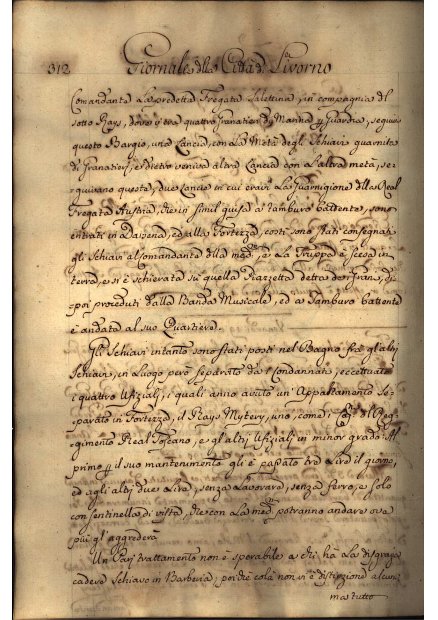 312 Giornale della Città di Livorno
Comandante La predetta Fregata Salettina, in compagnia del
sotto Rays, dove v'era quattro Granatieri di Marina per Guardia, seguia
questo Bargio, una Lancia, con La Metà degli Schiavi guarnita
di Granatieri, e dietro veniva altra Lancia con L'altra metà, se-
=guivano questa, due Lancie in cui eravi La Guarnigione della Real
Fregata Austria, che in simil guisa a tamburo battente, sono
entrati in Darsena, ed alla Fortezza, costì sono stati consegnati
gli Schiavi al Comandante della med.ma e La Truppa è scesa in
terra, e si è schierata su quella Piazzetta detta dei Grani, di
=poi proceduti dalla Banda Musicale, ed a Tamburo battente
è andata al suo Quartiere.
Gli Schiavi intanto sono stati posti nel Bagno fra gl'altri
Schiavi, in Luogo però separato da i Condannati, eccettuato
i quattro Ufiziali, i quali anno avuto un'Appartamento Se-
parato in Fortezza, il Rays Mytery, uno, come i del Reg-
=gimento Real Toscano, e gl'altri Ufiziali in minor grado. Al
primo per il suo mantenimento gli è passato tre Lire il giorno,
ed agli altri due Lire, senza Lavorare, senza ferro, e solo
con sentinella di vista, che con La med.ma potranno andare ova
più gl'aggrederà
Un Pari trattamento non è sperabile a chi hà La disgrazia
cadere Schiavo in Barberia, poiche colà non vi è distinzione alcuna
mas tutto